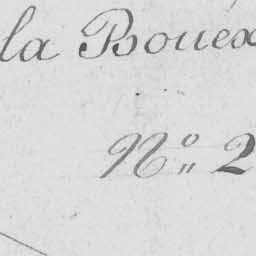 la Bouëx
N.º 2